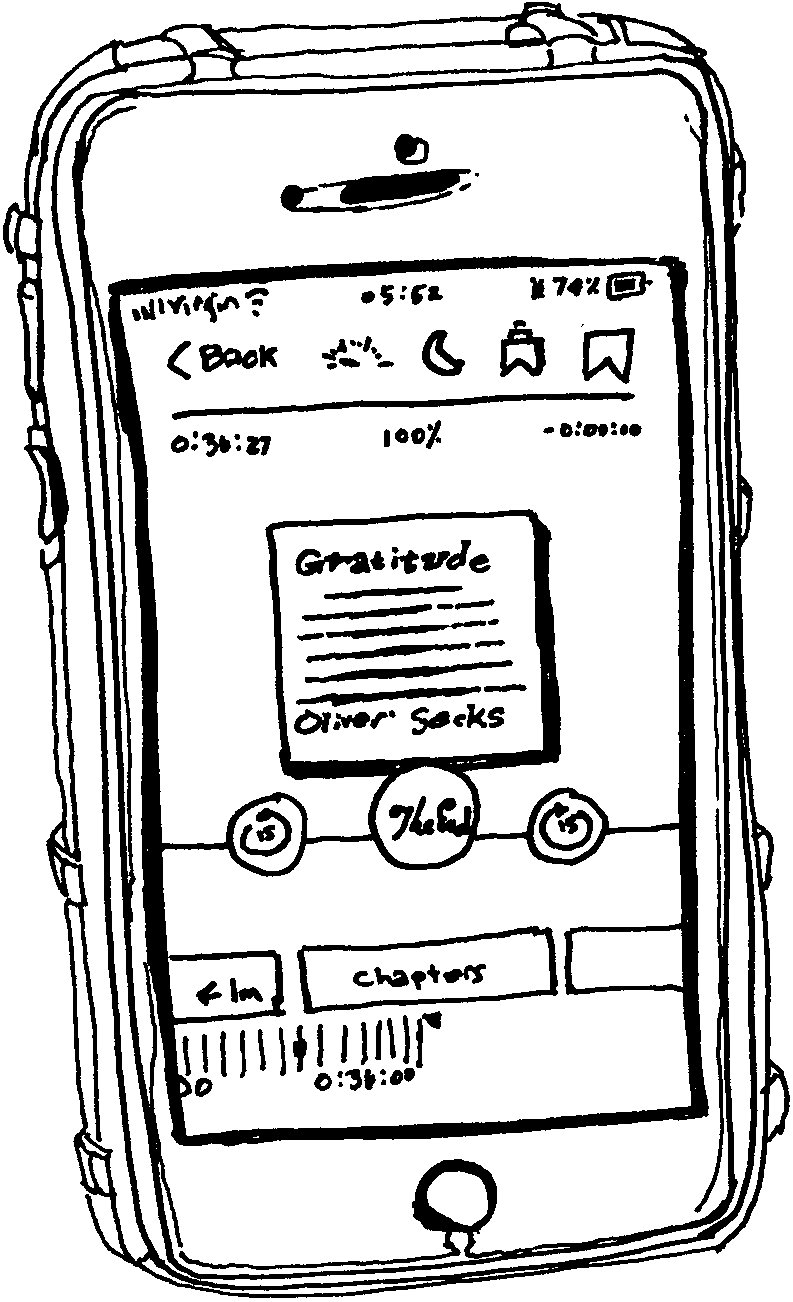 Virgin 05:52 74%
Back
0:36:27 100% -0:00:00
Gratitude
Oliver Sacks
15 The End 15
← 1m chapters
00 0:36:00